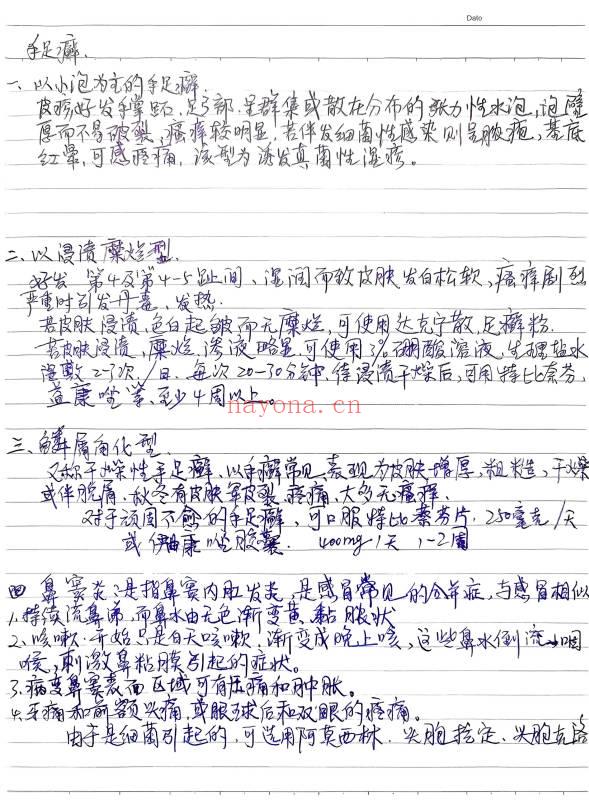 Date
手足癣.
一、以小泡为主的手足癣.
皮疹好发手掌跖,足弓部.呈群集或散在分布的张力性水泡,泡壁
厚而不易破裂,瘙痒较明显.若伴发细菌性感染则呈脓疱,基底
红晕,可感疼痛,该型为诱发真菌性湿疹。
二、以浸渍糜烂型.
好发 第4及第4-5趾间、湿润而致皮肤发白松软、瘙痒剧烈
严重时引发丹毒、发热.
若皮肤浸渍、色白起皱而无糜烂,可使用达克宁散、足癣粉.
若皮肤浸渍,糜烂、渗液略显,可使用3%硼酸溶液,生理盐水
湿敷2-3次/日.每次20-30分钟.待浸渍干燥后,可用特比奈芬,
益康唑等、至少4周以上。
nayona.cn
三、鳞屑角化型.
又称干燥性手足癣.以手癣常见,表现为皮肤增厚、粗糙,干燥
或伴脱屑.秋冬有皮肤皲裂、疼痛,大多无瘙痒.
对于顽固不愈的手足癣,可口服特比萘芬片.250毫克/天
或伊曲康唑胶囊. 400mg/天 1-2周
四 鼻窦炎:是指鼻窦内肌发炎,是感冒常见的合并症,与感冒相似
1.持续流鼻涕,而鼻水由无色渐变黄、黏脓状
2.咳嗽:开始只是白天咳嗽,渐变成晚上咳,这些鼻水倒流→咽
喉,刺激鼻粘膜引起的症状。
3.病变鼻窦表面区域可有压痛和肿胀。
4.牙痛和前额头痛,或眼球后和双眼的疼痛。
由于是细菌引起的,可选用阿莫西林.头孢拉定、头孢克洛